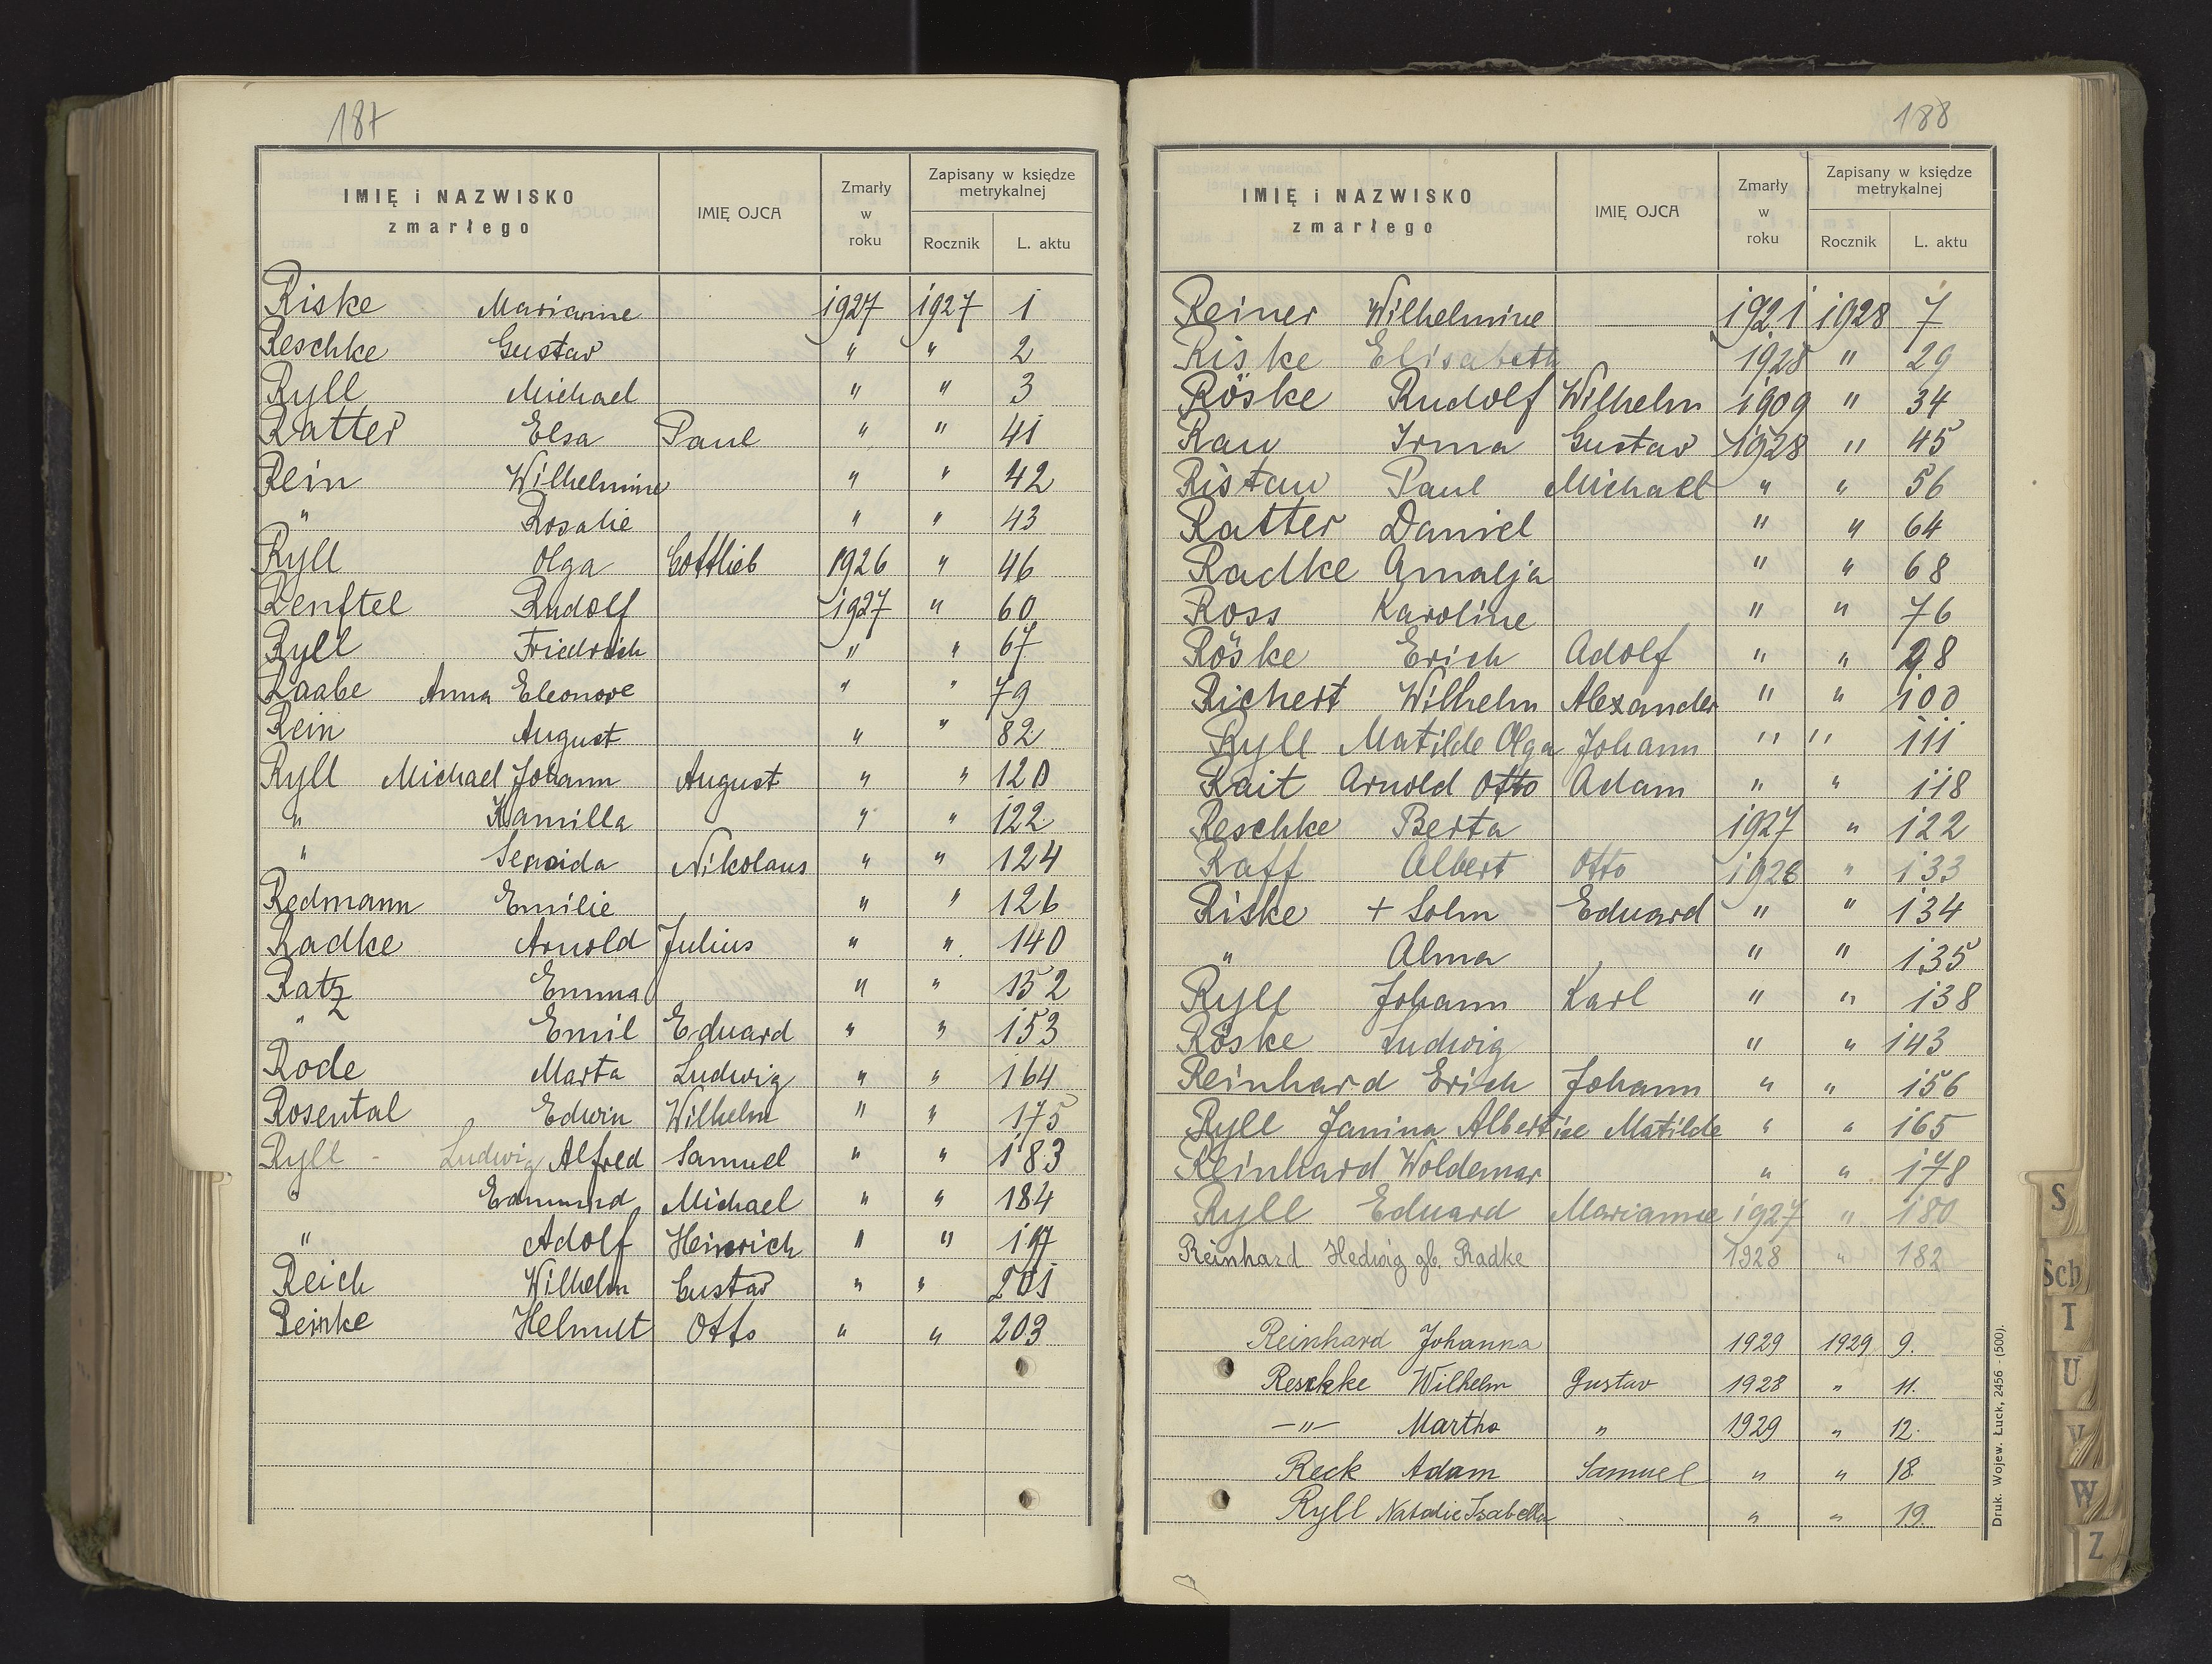 187
IMIĘ i NAZWISKO
zmarłego
IMIĘ OJCA
Zmarły
w
roku
Zapisany w księdze
metrykalnej
Rocznik
L. aktu
Riske Marianne 1927 1927 1
Reschke Gustav " " 2
Ryll Michael " " 3
Ratter Elsa Paul " " 41
Rein Wilhelmine " " 42
" Rosalie " " 43
Ryll Olga Gottlieb 1926 " 46
Renftel Rudolf 1927 " 60
Ryll Friedrich " " 67
Raabe Anna Eleonore " " 79
Rein August " " 82
Ryll Michael Johann August " " 120
" Kamilla " " 122
" Nikolaus " " 124
Redmann Emilie " " 126
Radke Arnold Julius " " 140
Ratz Emma " " 152
" Emil Eduard " " 153
Rode Marta Ludwig " " 164
Rosental Edwin Wilhelm " " 175
Ryll - Ludwig Alfred Samuel " " 183
" Edmund Michael " " 184
" Adolf Heinrich " "
Reich Wilhelm Gustav " " 201
Reinke Helmut Otto " " 203
188
IMIĘ i NAZWISKO
zmarłego
IMIĘ OJCA
Zmarły
w
roku
Zapisany w księdze
metrykalnej
Rocznik
L. aktu
Reiner Wilhelmine 1921 1928 7
Riske Elisabeth 1928 " 29
Röske Rudolf Wilhelm 1909 " 34
Rau Irma Gustav 1928 " 45
Ristau Paul Michael " " 56
Ratter Daniel " " 64
Radke Amalja " " 68
Ross Karoline " " 76
Röske Erich Adolf " " 98
Richert Wilhelm Alexander " " 100
Ryll Matilde Olga Johann " " 111
Rait Arnold Otto Adam " " 118
Reschke Berta 1927 " 122
Raff Albert Otto 1928 " 133
Riske + Sohn Eduard " " 134
" Alma " " 135
Ryll Johann Karl " " 138
Röske Ludwig " " 143
Reinhard Erich Johann " " 156
Ryll Janina Albertine Matilde " " 165
Reinhard Woldemar " " 178
Ryll Eduard Marianne 1927 " 180
Reinhard Hedwig gb. Radke 1928 " 182
Reinhard Johanna 1929 1929 9.
Reschke Wilhelm Gustav 1928 " 11.
—"— Martha " 1929 " 12.
Reck Adam Samuel " " 18.
Ryll Natalie Isabella " " 19.
Druk. Wojew. Łuck, 2456 - (500).
S
Sch
T
U
V
W
Z